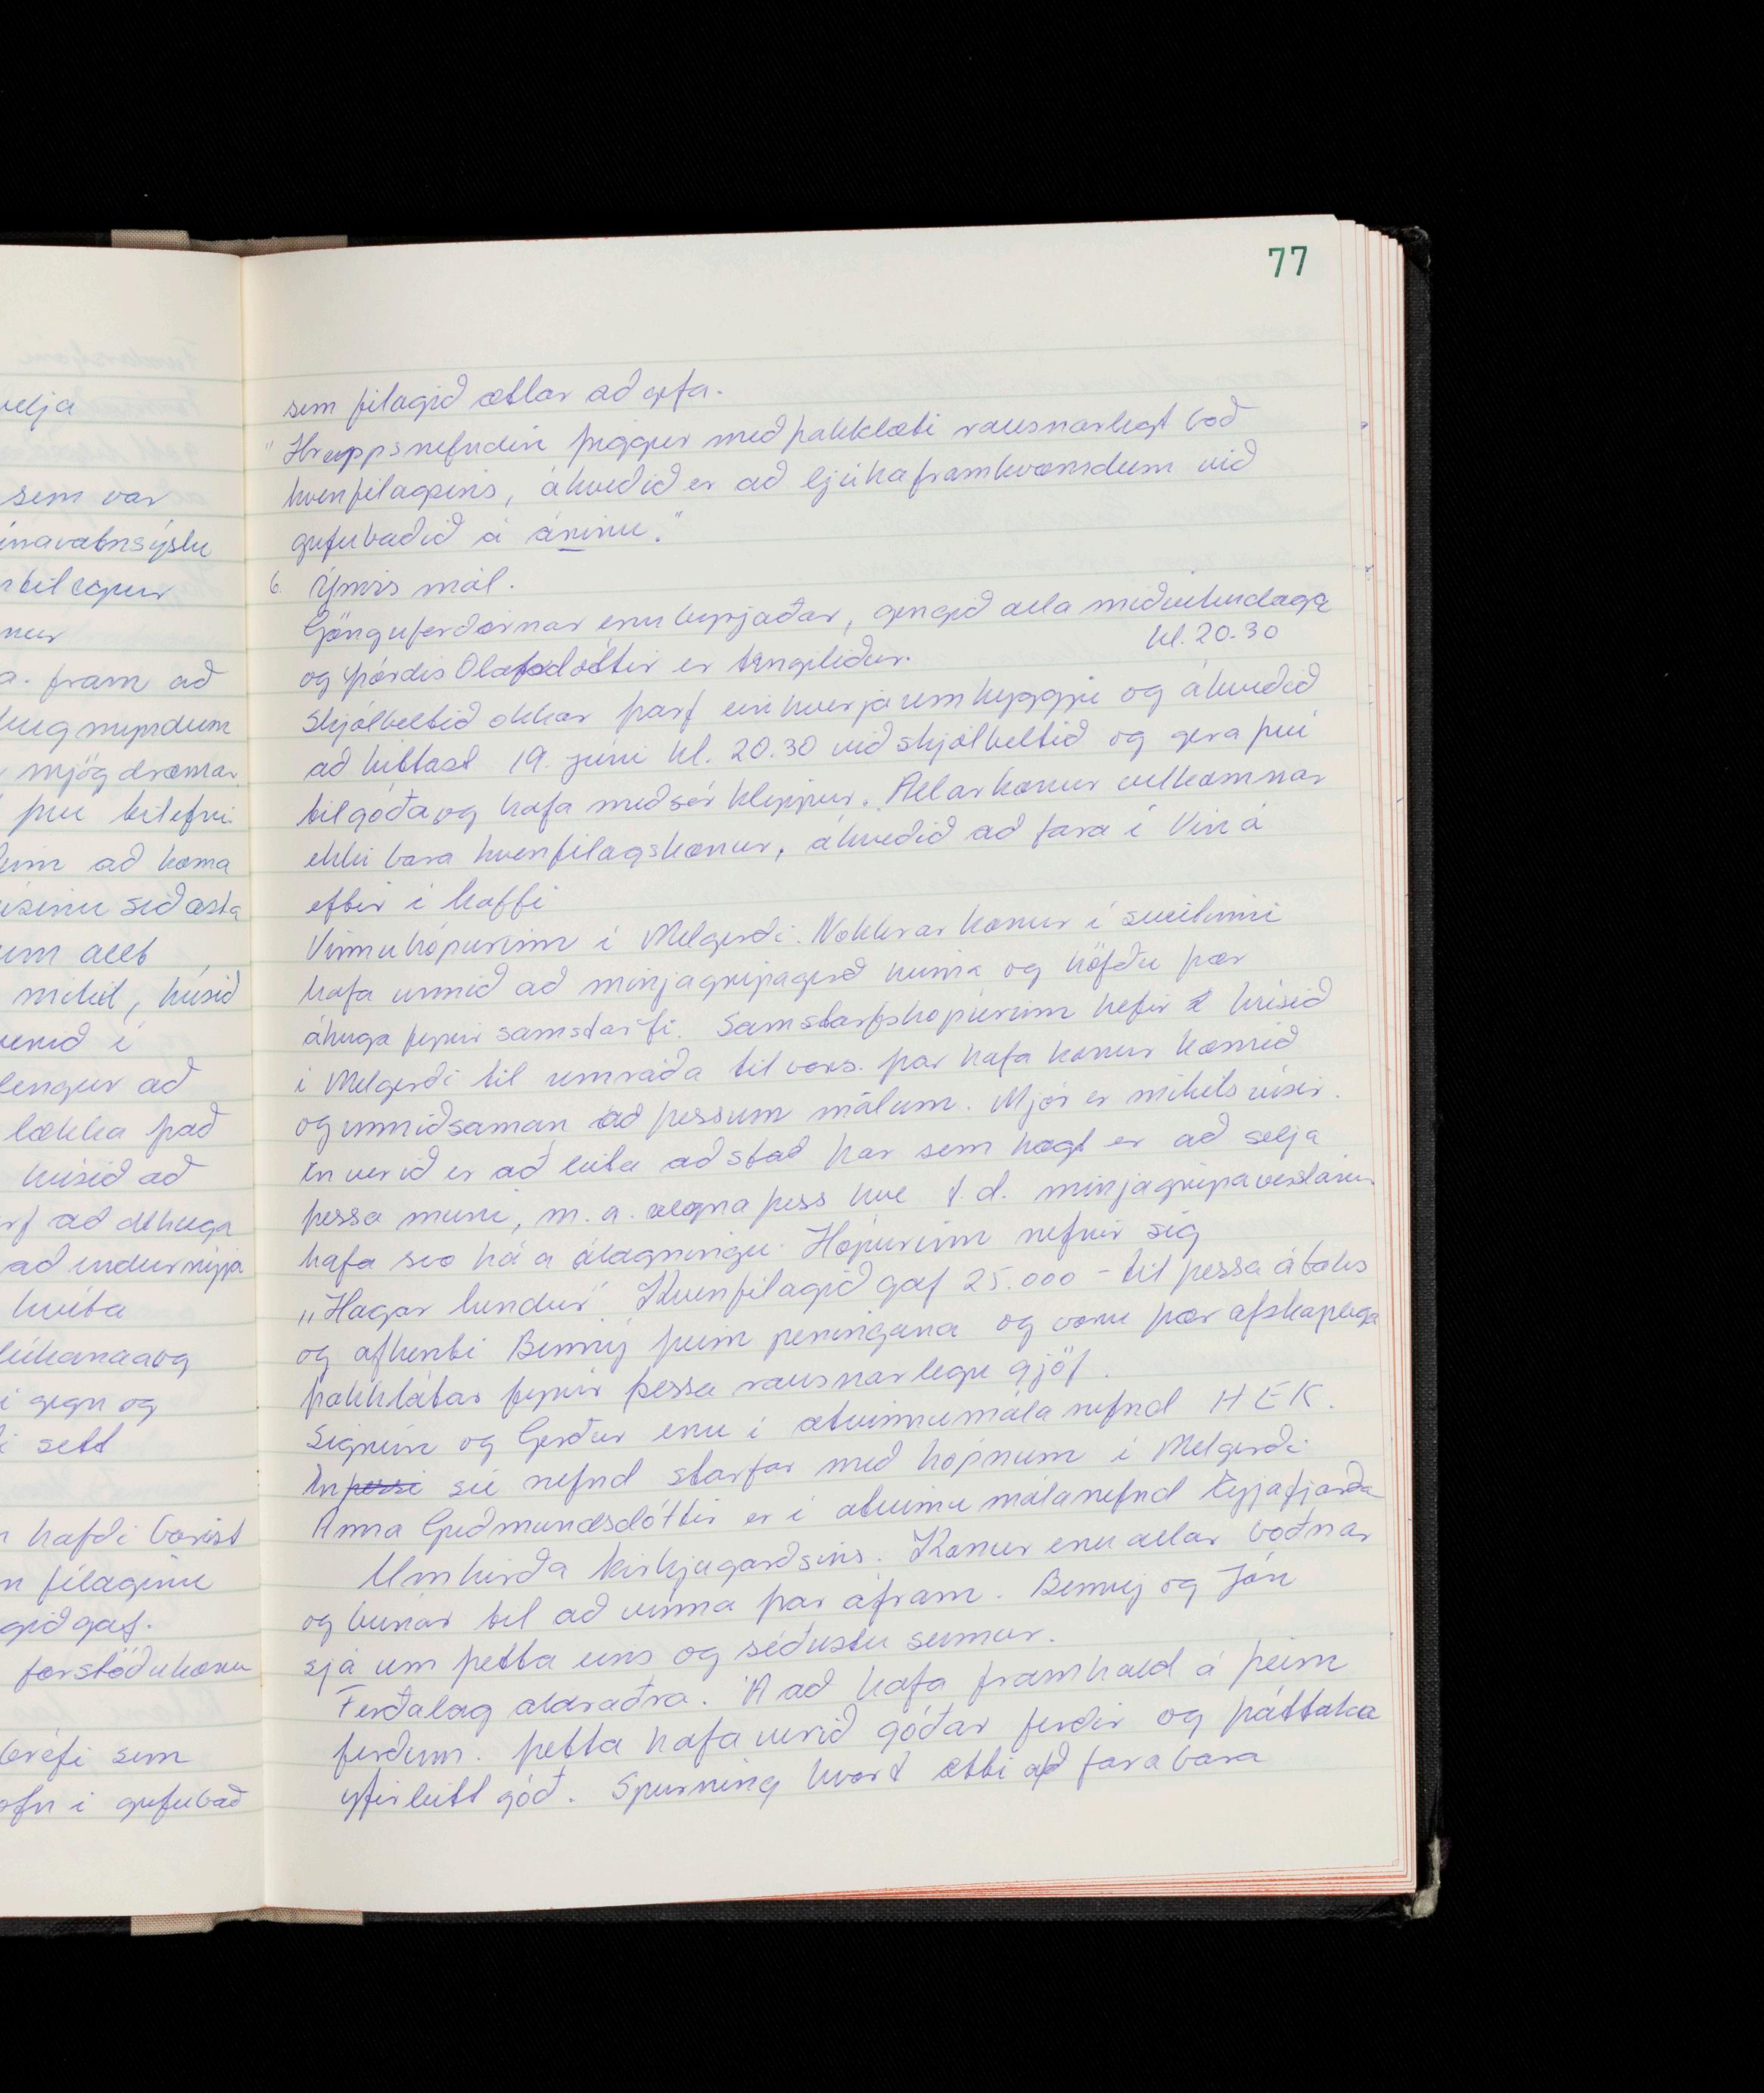 77
velja
sem var
únavatnsýslu
nur
a. fram að
hugmyndum
mjög dræmar.
því tilefni
að koma
síðasta
um allt
mikil, húsið
verið í
lengur að
lækka það
húsið að
að athuga
að endurnýja
hvíta
og
í gegn og
sett
hafði borist
félaginu
gið gaf.
forstöðukonu
bréfi sem
ofn í gufubað
sem félagið ætlar að gefa.
"Hreppsnefndin þiggur með þakklæti rausnarlegt boð
kvenfélagsins, ákveðið er að ljúka framkvæmdum við
gufubaðið á árinu."
6. Ýmis mál.
Gönguferðirnar eru byrjaðar, gengið alla miðvikudaga
kl. 20.30
og Þórdís Ólafsdóttir er tengiliður.
Skjólbeltið okkar þarf einhverja umhyggju og ákveðið
að hittast 19. júní kl. 20.30 við skjólbeltið og gera því
til góða og hafa með sér klippur. Allar konur velkomnar
ekki bara kvenfélagskonur, ákveðið að fara í Vín á
eftir í kaffi
Vinnuhópurinn í Melgerði. Nokkrar konur í sveitinni
hafa unnið að minjagripagerð heima og höfðu þær
áhuga fyrir samstarfi. Samstarfshópurinn hefir húsið
í Melgerði til umráða til vors. þar hafa konur komið
og unnið saman að þessum málum. Mjór er mikils vísir.
En verið er að leita að stað þar sem hægt er að selja
þessa muni, m.a. vegna þess hve t.d. minjagripaverslanir
hafa svo háa álagningu. Hópurinn nefnir sig
„Hagar hendur" Kvenfélagið gaf 25.000 - til þessa átaks
og afhenti Benný þeim peningana og voru þær afskaplega
þakklátar fyrir þessa rausnarlegu gjöf.
Sigrún og Gerður eru í atvinnumálanefnd HEK.
En þessi sú nefnd starfar með hópnum í Melgerði
Anna Guðmundsdóttir er í atvinnumálanefnd Eyjafjarða
Umhirða kirkjugarðsins. Konur eru allar boðnar
og búnar til að vinna þar áfram. Benný og Jón
sjá um þetta eins og síðustu sumur.
Ferðalag aldraðra. Á að hafa framhald á þeim
ferðum. þetta hafa verið góðar ferðir og þáttaka
yfirleitt góð. Spurning hvort ætti að fara bara